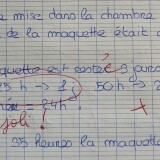 a mise dans la chambre
de la maquette était
quette est resté é 3 jours
25 h → 1 50 h → 2
= 24h
joli !
35 heures la maquette